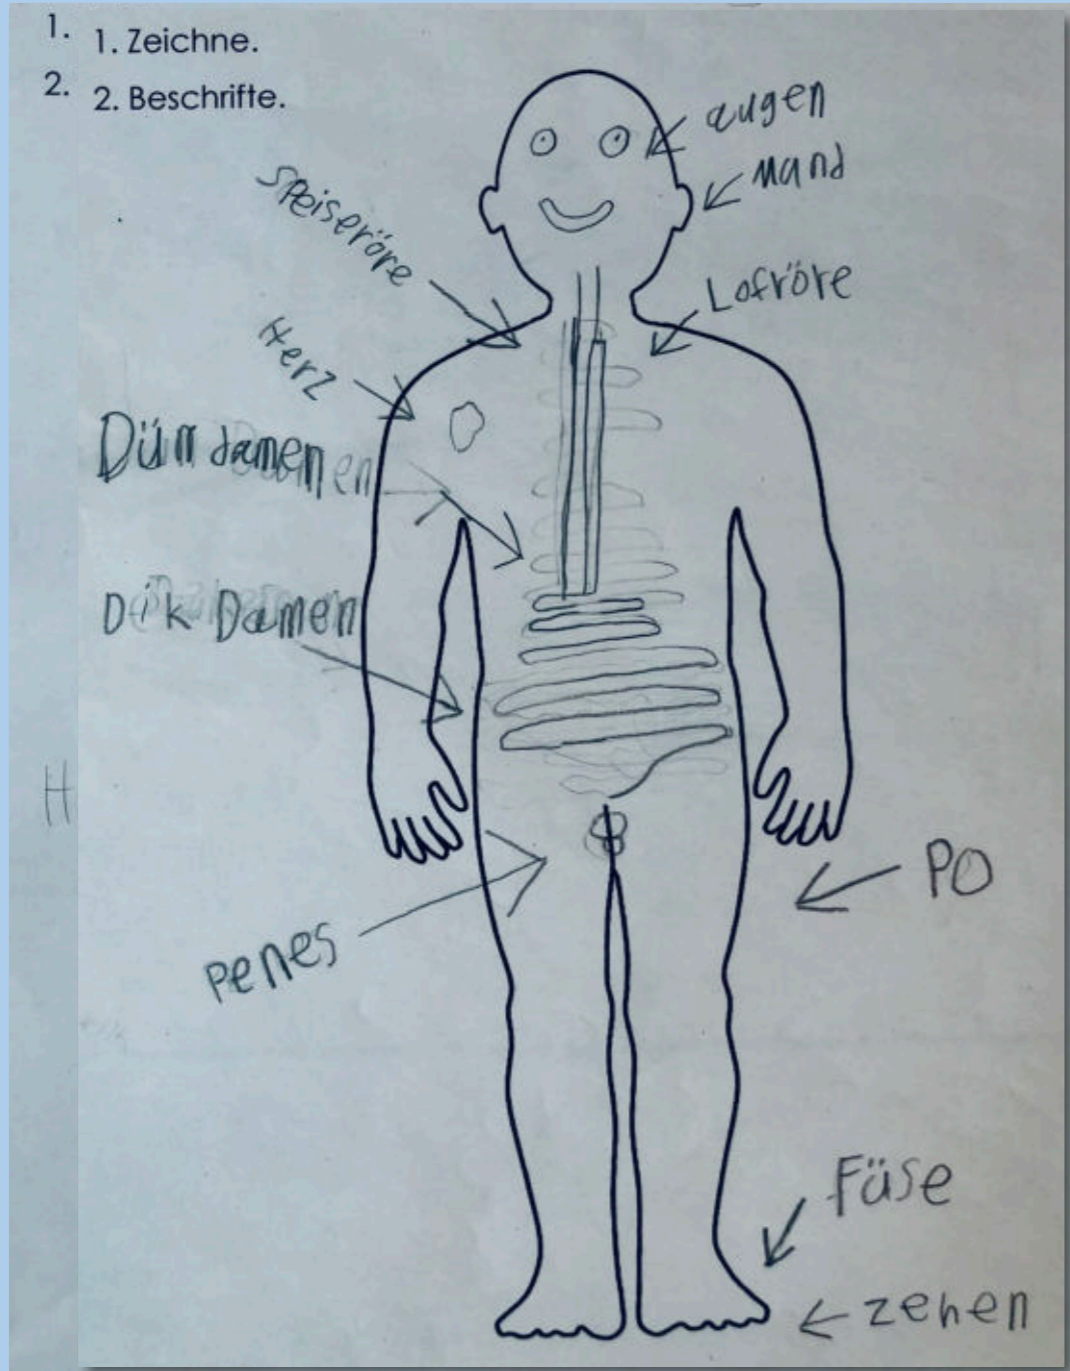 1. 1. Zeichne.
2. 2. Beschrifte.
augen
Mund
Speiseröre
Lofröre
Herz
Dün damen
Dik Damen
H
PO
Penes
Füse
zehen